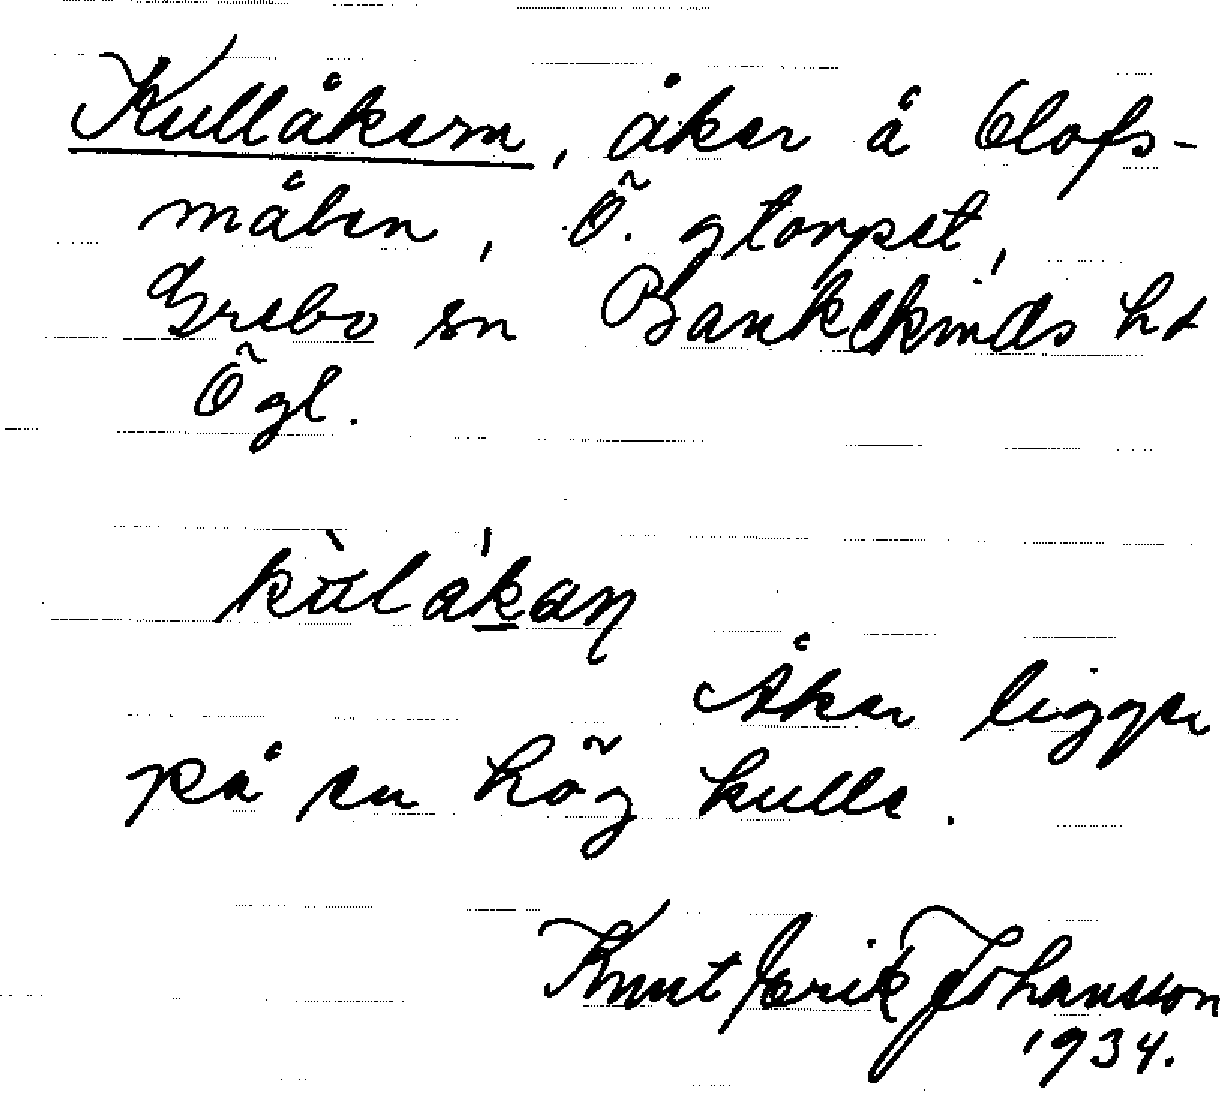 Kullåkern, åker å Olofs-
målen, Ö. gtorpet,
Grebo sn Bankekinds hd
Ögl.
kùlákaṇ
Åker ligger
på en hög kulle.
Knut Erik Johansson
1934.